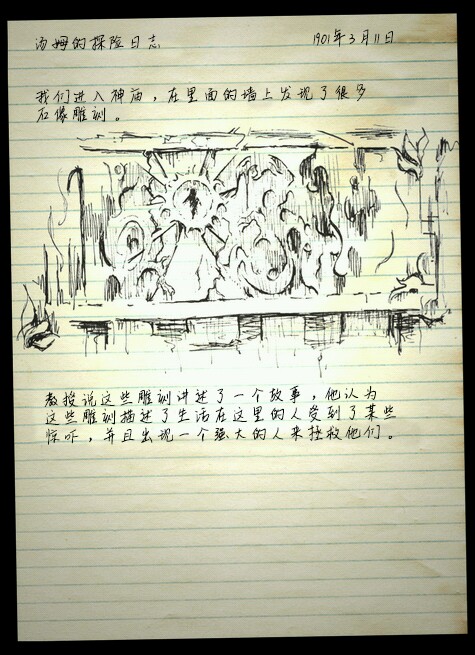 汤姆的探险日志
1901年3月11日
我们进入神庙，在里面的墙上发现了很多
石像雕刻。
教授说这些雕刻讲述了一个故事，他认为
这些雕刻描述了生活在这里的人受到了某些
惊吓，并且出现一个强大的人来拯救他们。